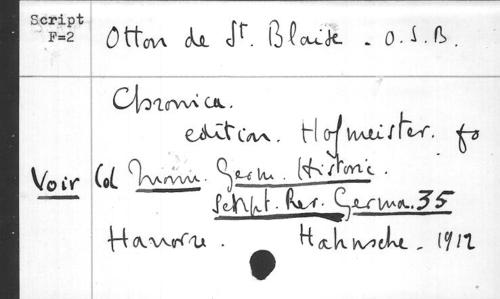 Script
F=2
Otton de St. Blaise - O.S.B.
Chronica.
edition. Hofmeister. fo
Voir Col Mon. Germ. Historic.
Script. Rer. Germa. 35
Hanovre. Hahnsche - 1912